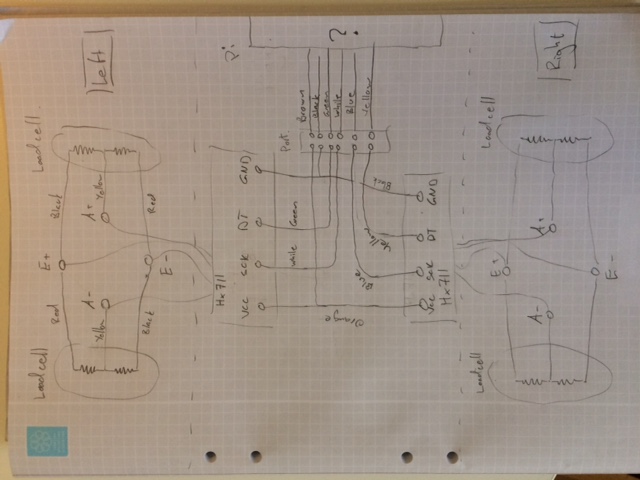 Loadcell
E+
Loadcell.
Red
Black
A-
A+
Yellow
Yellow
Left
Black
Red
E-
Hx711
Pi
VCC
SCK
DT
GND
Port
White
Green
Brown
Black
Green
White
Blue
Yellow
?
Orange
Blue
Yellow
Black
VCC
SCK
DT
GND
Hx711
Loadcell
E+
Loadcell
A-
A+
Right
E-